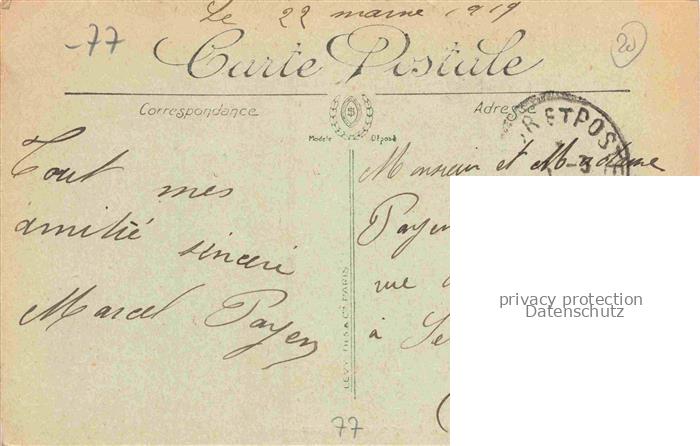 Le 22 marse 1919
-77
20
Carte Postale
Correspondance
Adresse
Modèle Déposé
TPOS
Tout mes
amitié sinceri
Marcel Payen
Monsieur et Madame
Payen
rue
à Se
LEVY FILS & Cie PARIS
77
privacy protection
Datenschutz